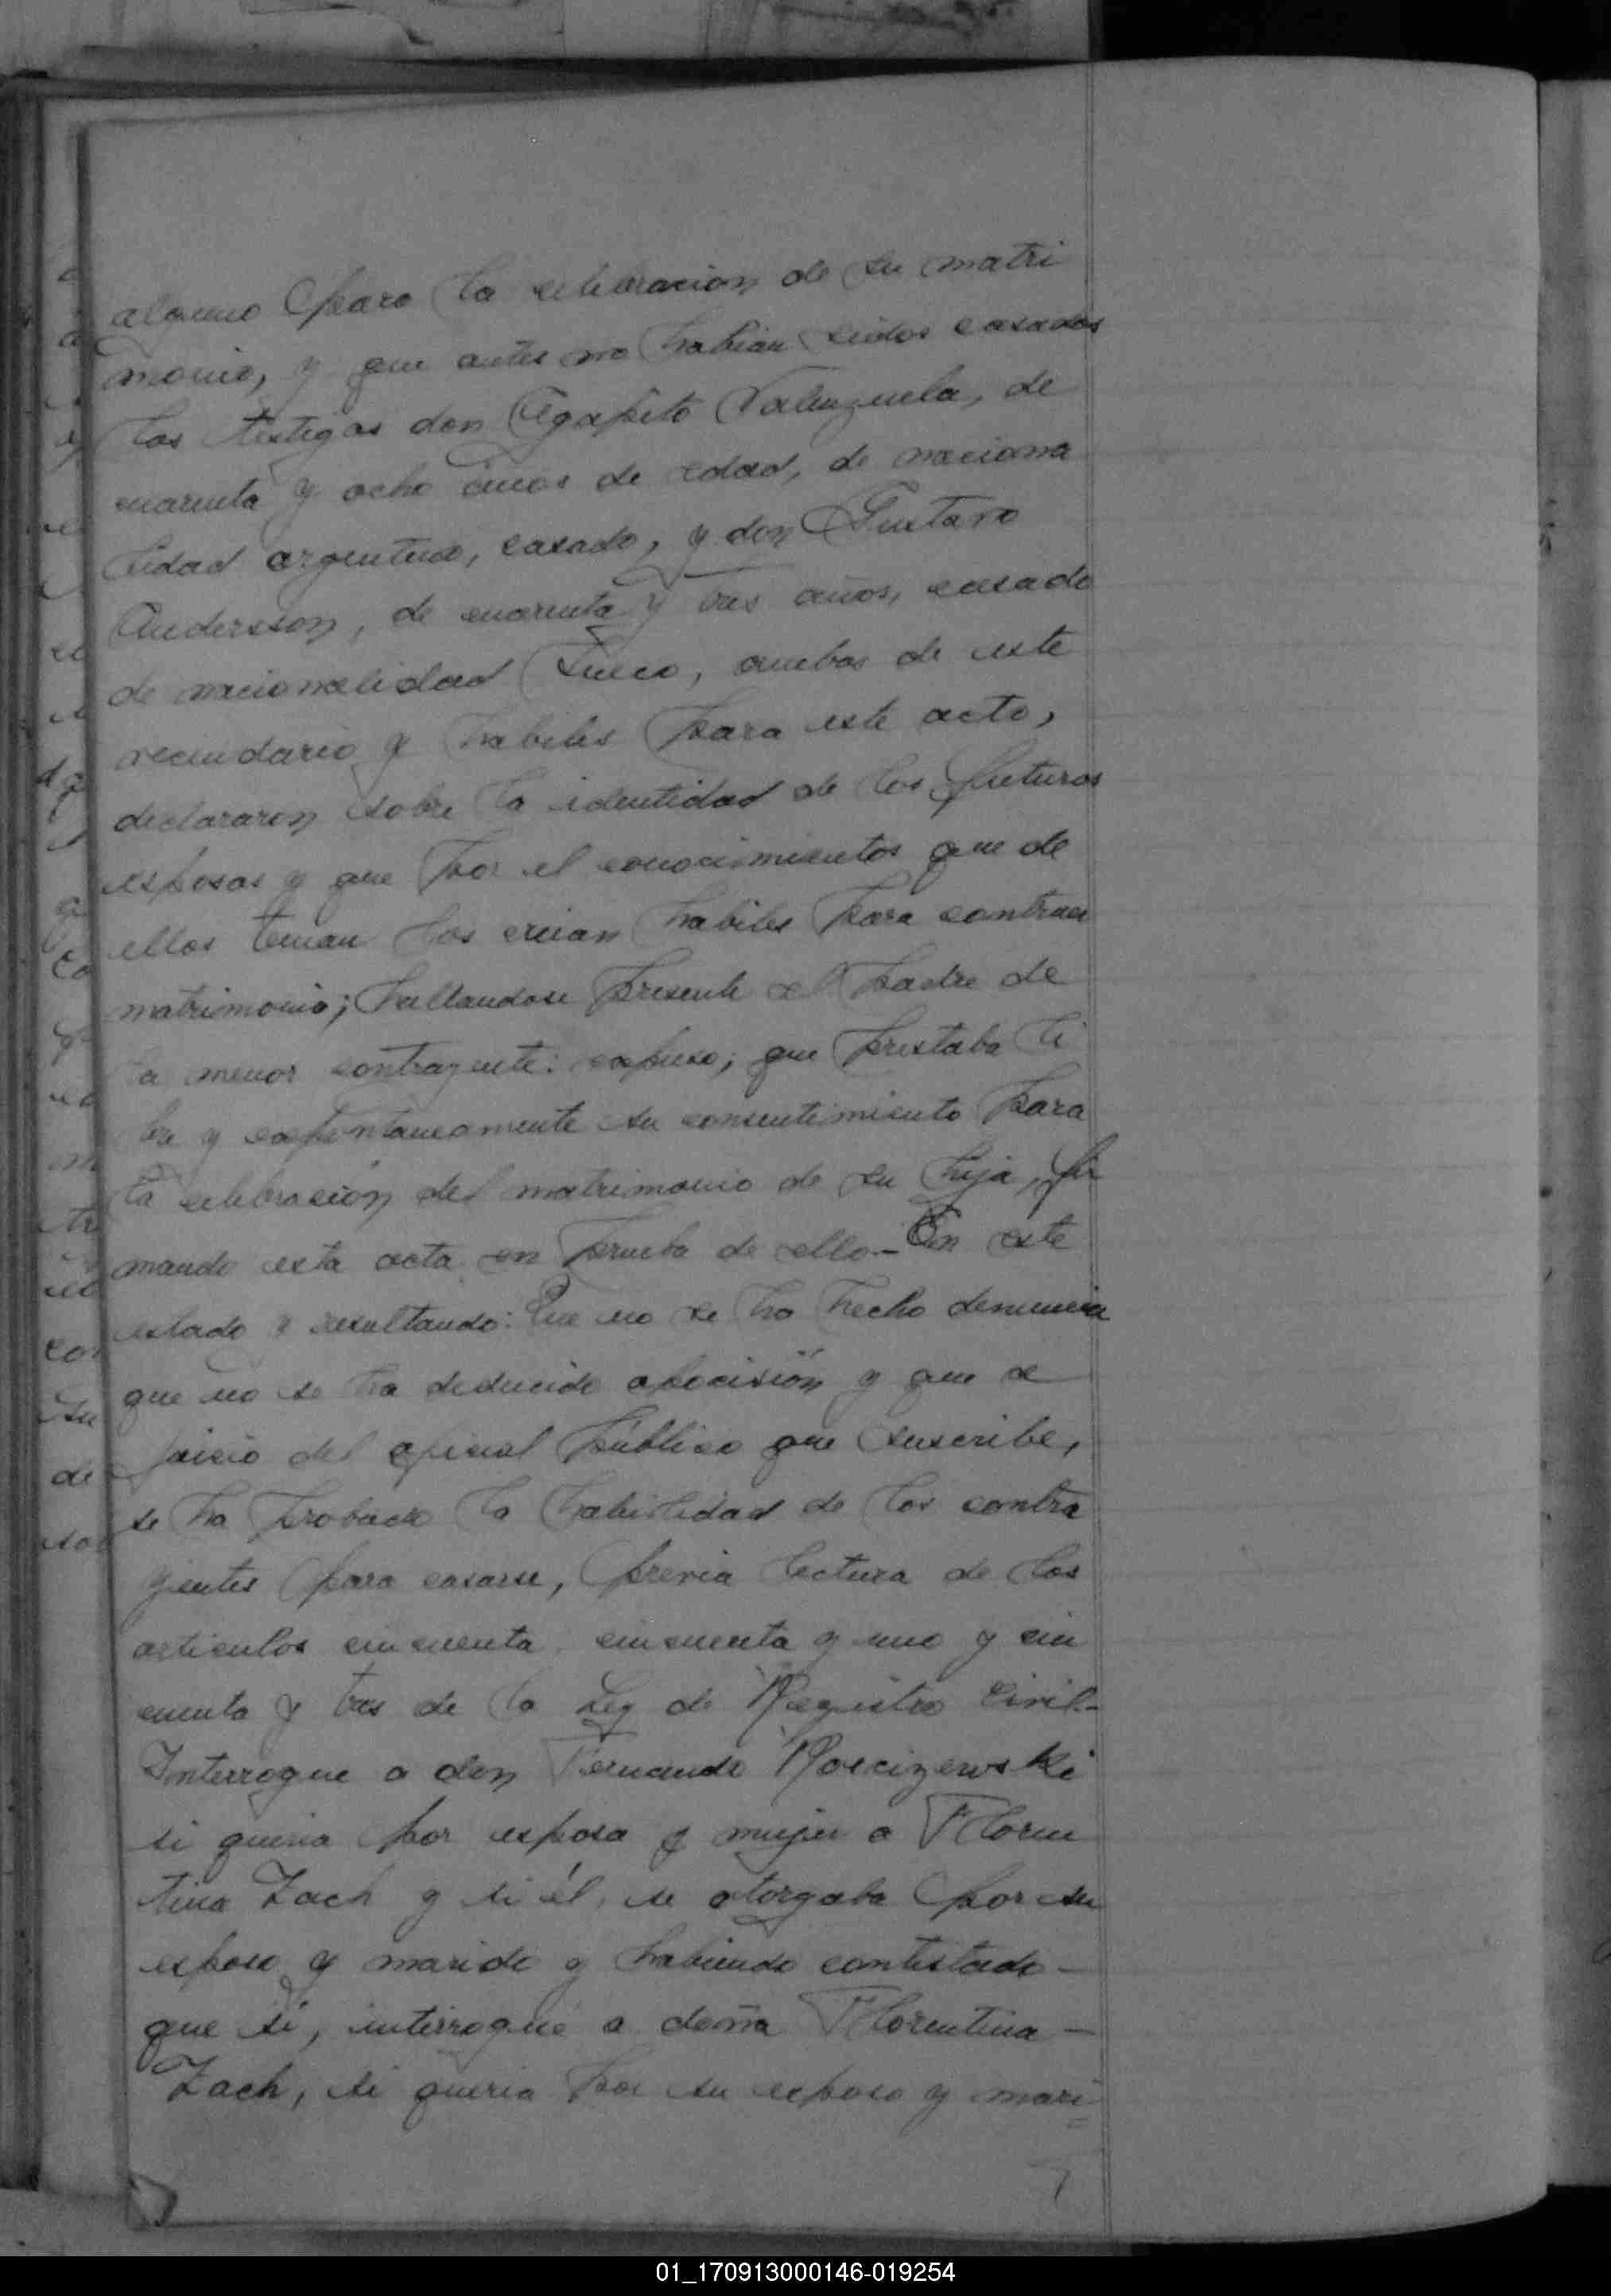 alguno para la celebracion de su matri
monio, y que antes no habian sidos casados
los testigos don Agapito Valenzuela, de
cuarenta y ocho años de edad, de naciona
lidad argentino, casado, y don Gustavo
Andersson, de cuarenta y tres años, casado
de nacionalidad Sueco, ambos de este
vecindario y habiles para este acto,
declararon sobre la identidad de los futuros
esposos y que por el conocimientos que de
ellos tenian los creian habiles para contraer
matrimonio; hallandose presente el padre de
la menor contrayente: expuso; que prestaba li
bre y expontaneamente su consentimiento para
la celebración del matrimonio de su hija, fir
mando esta acta en prueba de ello.- En este
estado y resultando: Que no se ha hecho denuncia
que no se ha deducido opocisión y que a
juicio del oficial público que suscribe,
se ha probado la habilidad de los contra
yentes para casarse, previa lectura de los
articulos cincuenta, cincuenta y uno y cin
cuenta y tres de la Ley de Registro Civil.-
Interrogue a don Fernando
si queria por esposa y mujer a Floren
tina Zach y si él, se otorgaba por su
esposo y marido y habiendo contestado -
que si, interrogué a doña Florentina -
Zach, si queria por su esposo y mari-
01_170913000146-019254